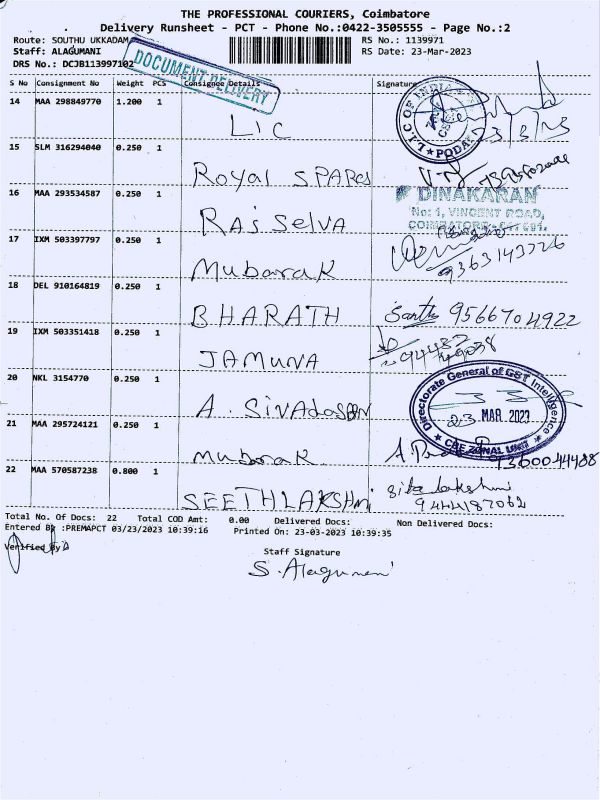 THE PROFESSIONAL COURIERS, Coimbatore
Delivery Runsheet - PCT - Phone No.:0422-3505555 - Page No.:2
Route: SOUTHU UKKADAM RS No.: 1139971
Staff: ALAGUMANI RS Date: 23-Mar-2023
DRS No.: DCJB113997102
DOCUMENT DELIVERY
S No Consignment No Weight PCS Consignee Details Signature
14 MAA 298849770 1.200 1 LIC
L.I.C OF INDIA
PODA
23/3/23
15 SLM 316294040 0.250 1 ROYAL SPARES
16 MAA 293534587 0.250 1 RAJ SELVA
DINAKARAN
No: 1, VINCENT ROAD,
COIMBATORE
17 IXM 503397797 0.250 1 Mubarak 9363143726
18 DEL 910164819 0.250 1 BHARATH 9566704922
19 IXM 503351418 0.250 1 JAMUNA
20 NKL 3154770 0.250 1 A. SIVADASAN
Directorate General of GST Intelligence
23 MAR 2023
CBE ZONAL UNIT
21 MAA 295724121 0.250 1 Mubarak
22 MAA 570587238 0.800 1 SEETHLAKSHMI
Total No. Of Docs: 22 Total COD Amt: 0.00 Delivered Docs: Non Delivered Docs:
Entered By :PREMAPCT 03/23/2023 10:39:16 Printed On: 23-03-2023 10:39:35
Verified By
Staff Signature
S. Alagumani